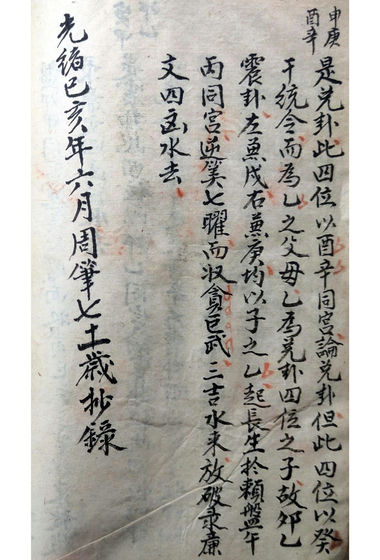 申庚
酉辛
是兑卦此四位以酉辛同宫論兑卦但此四位以癸
干統令而為乙之父母乙為兑卦四位之子故夘乙
震卦左兼戌右兼庚均以子之乙起長生於賴盤午
丙同宫逆筭七曜而收貪巨武三吉水来放破录廉
文四凶水去
光緒己亥年六月周肇七十一歲抄錄